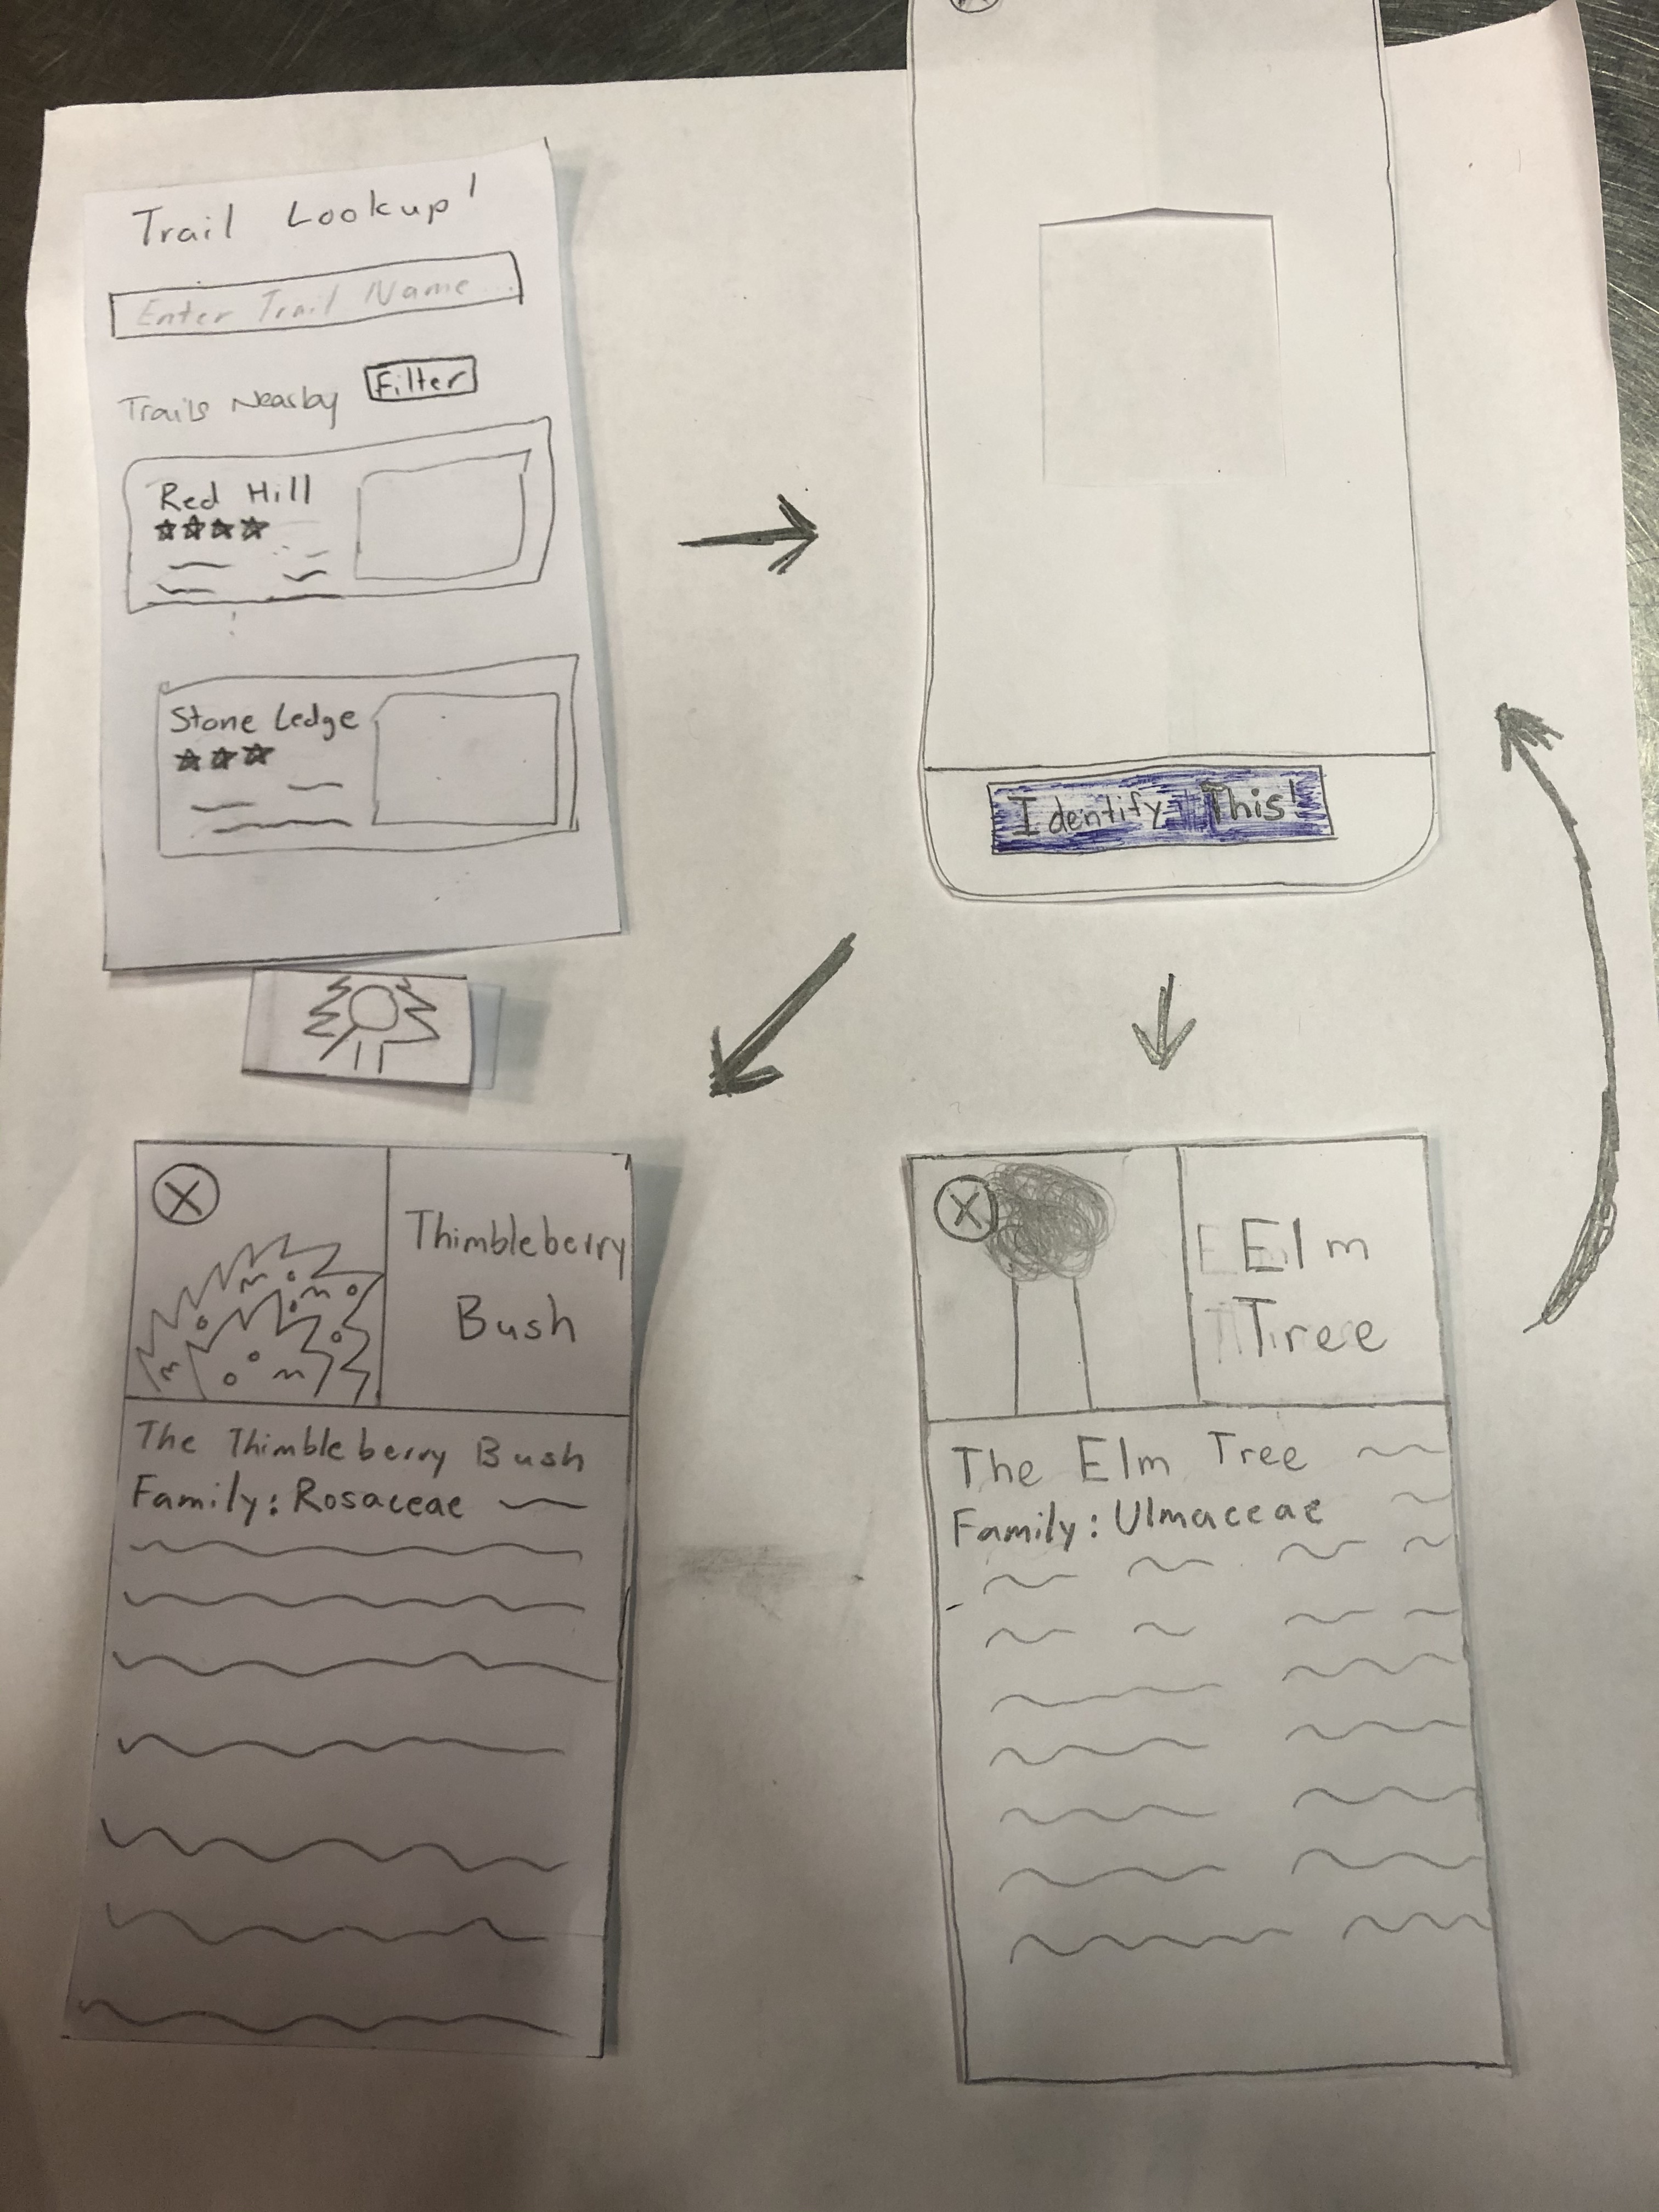 Trail Lookup!
Enter Trail Name...
Trails Nearby
Filter
Red Hill
Stone Ledge
Identify This!
X
Thimbleberry
Bush
The Thimbleberry Bush
Family: Rosaceae
X
Elm
Tree
The Elm Tree
Family: Ulmaceae